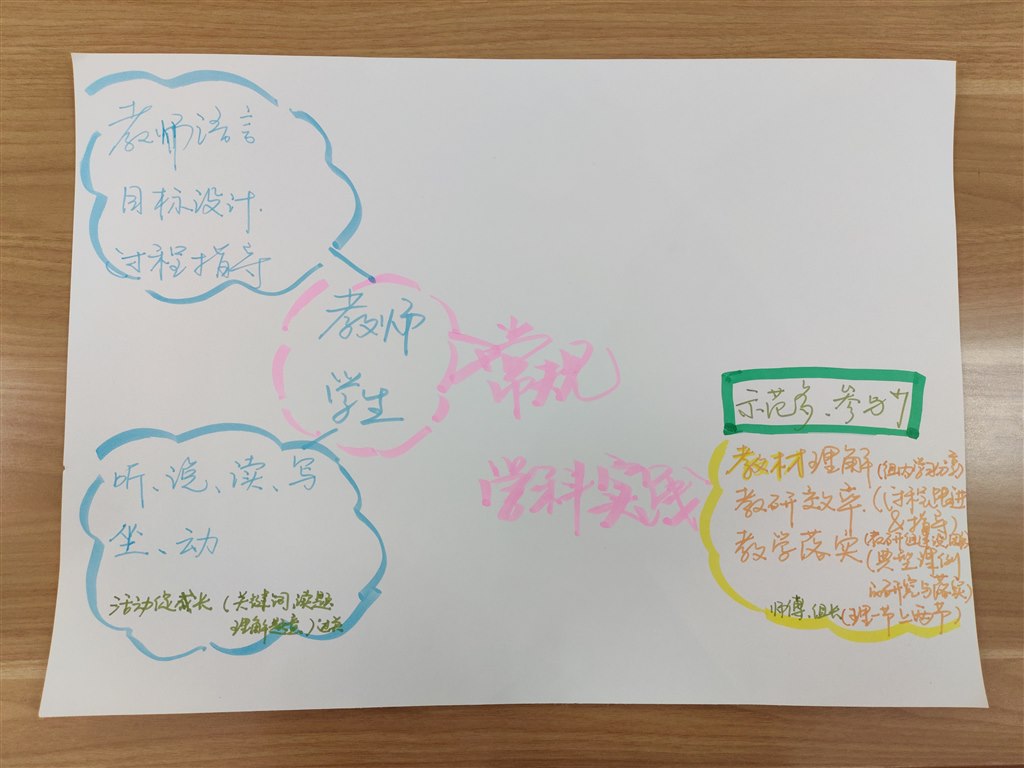 教师语言
目标设计
过程指导
教师
学生
常规
学科实践
听、说、读、写
坐、动
活动促成长（关键词,读题
理解题意）
示范多、参与少
教材理解
教研效率（过程跟进
&指导）
教学落实
（典型课例
的研究与落实）
师傅、组长（理一节上两节）